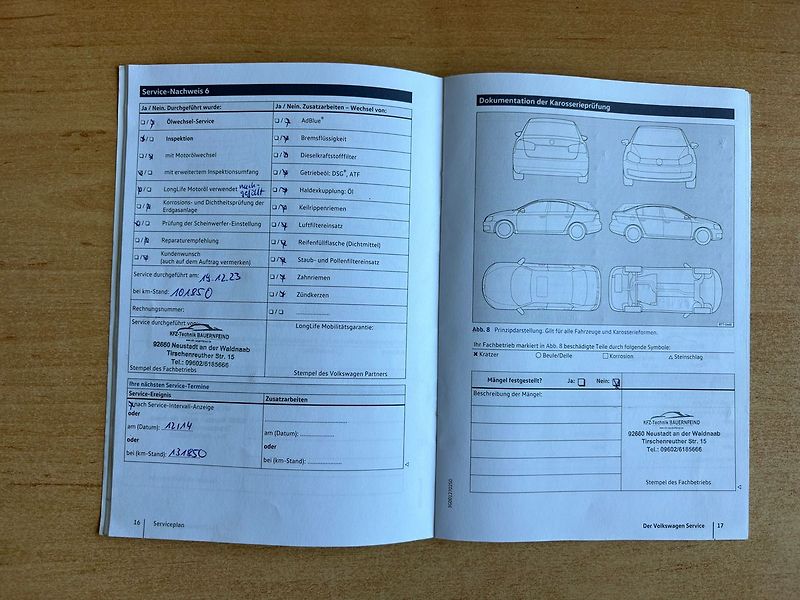 Service-Nachweis 6
Ja / Nein. Durchgeführt wurde:
Ölwechsel-Service
Inspektion
mit Motorölwechsel
mit erweitertem Inspektionsumfang
LongLife Motoröl verwendet nach-
gefüllt
Korrosions- und Dichtheitsprüfung der
Erdgasanlage
Prüfung der Scheinwerfer-Einstellung
Reparaturempfehlung
Kundenwunsch
(auch auf dem Auftrag vermerken)
Service durchgeführt am: 19.12.23
bei km-Stand: 101850
Rechnungsnummer:
Service durchgeführt von:
KFZ-Technik BAUERNFEIND
92660 Neustadt an der Waldnaab
Tirschenreuther Str. 15
Tel.: 09602/6185666
Stempel des Fachbetriebs
Ja / Nein. Zusatzarbeiten – Wechsel von:
AdBlue®
Bremsflüssigkeit
Dieselkraftstofffilter
Getriebeöl: DSG®, ATF
Haldexkupplung: Öl
Keilrippenriemen
Luftfiltereinsatz
Reifenfüllflasche (Dichtmittel)
Staub- und Pollenfiltereinsatz
Zahnriemen
Zündkerzen
LongLife Mobilitätsgarantie:
Stempel des Volkswagen Partners
Ihre nächsten Service-Termine
Service-Ereignis
nach Service-Intervall-Anzeige
oder
am (Datum):
oder
bei (km-Stand): 131850
Zusatzarbeiten
am (Datum):
oder
bei (km-Stand):
16 Serviceplan
Dokumentation der Karosserieprüfung
Abb. 8 Prinzipdarstellung. Gilt für alle Fahrzeuge und Karosserieformen.
Ihr Fachbetrieb markiert in Abb. 8 beschädigte Teile durch folgende Symbole:
Kratzer Beule/Delle Korrosion Steinschlag
Mängel festgestellt? Ja: Nein:
Beschreibung der Mängel:
KFZ-Technik BAUERNFEIND
92660 Neustadt an der Waldnaab
Tirschenreuther Str. 15
Tel.: 09602/6185666
Stempel des Fachbetriebs
Der Volkswagen Service 17